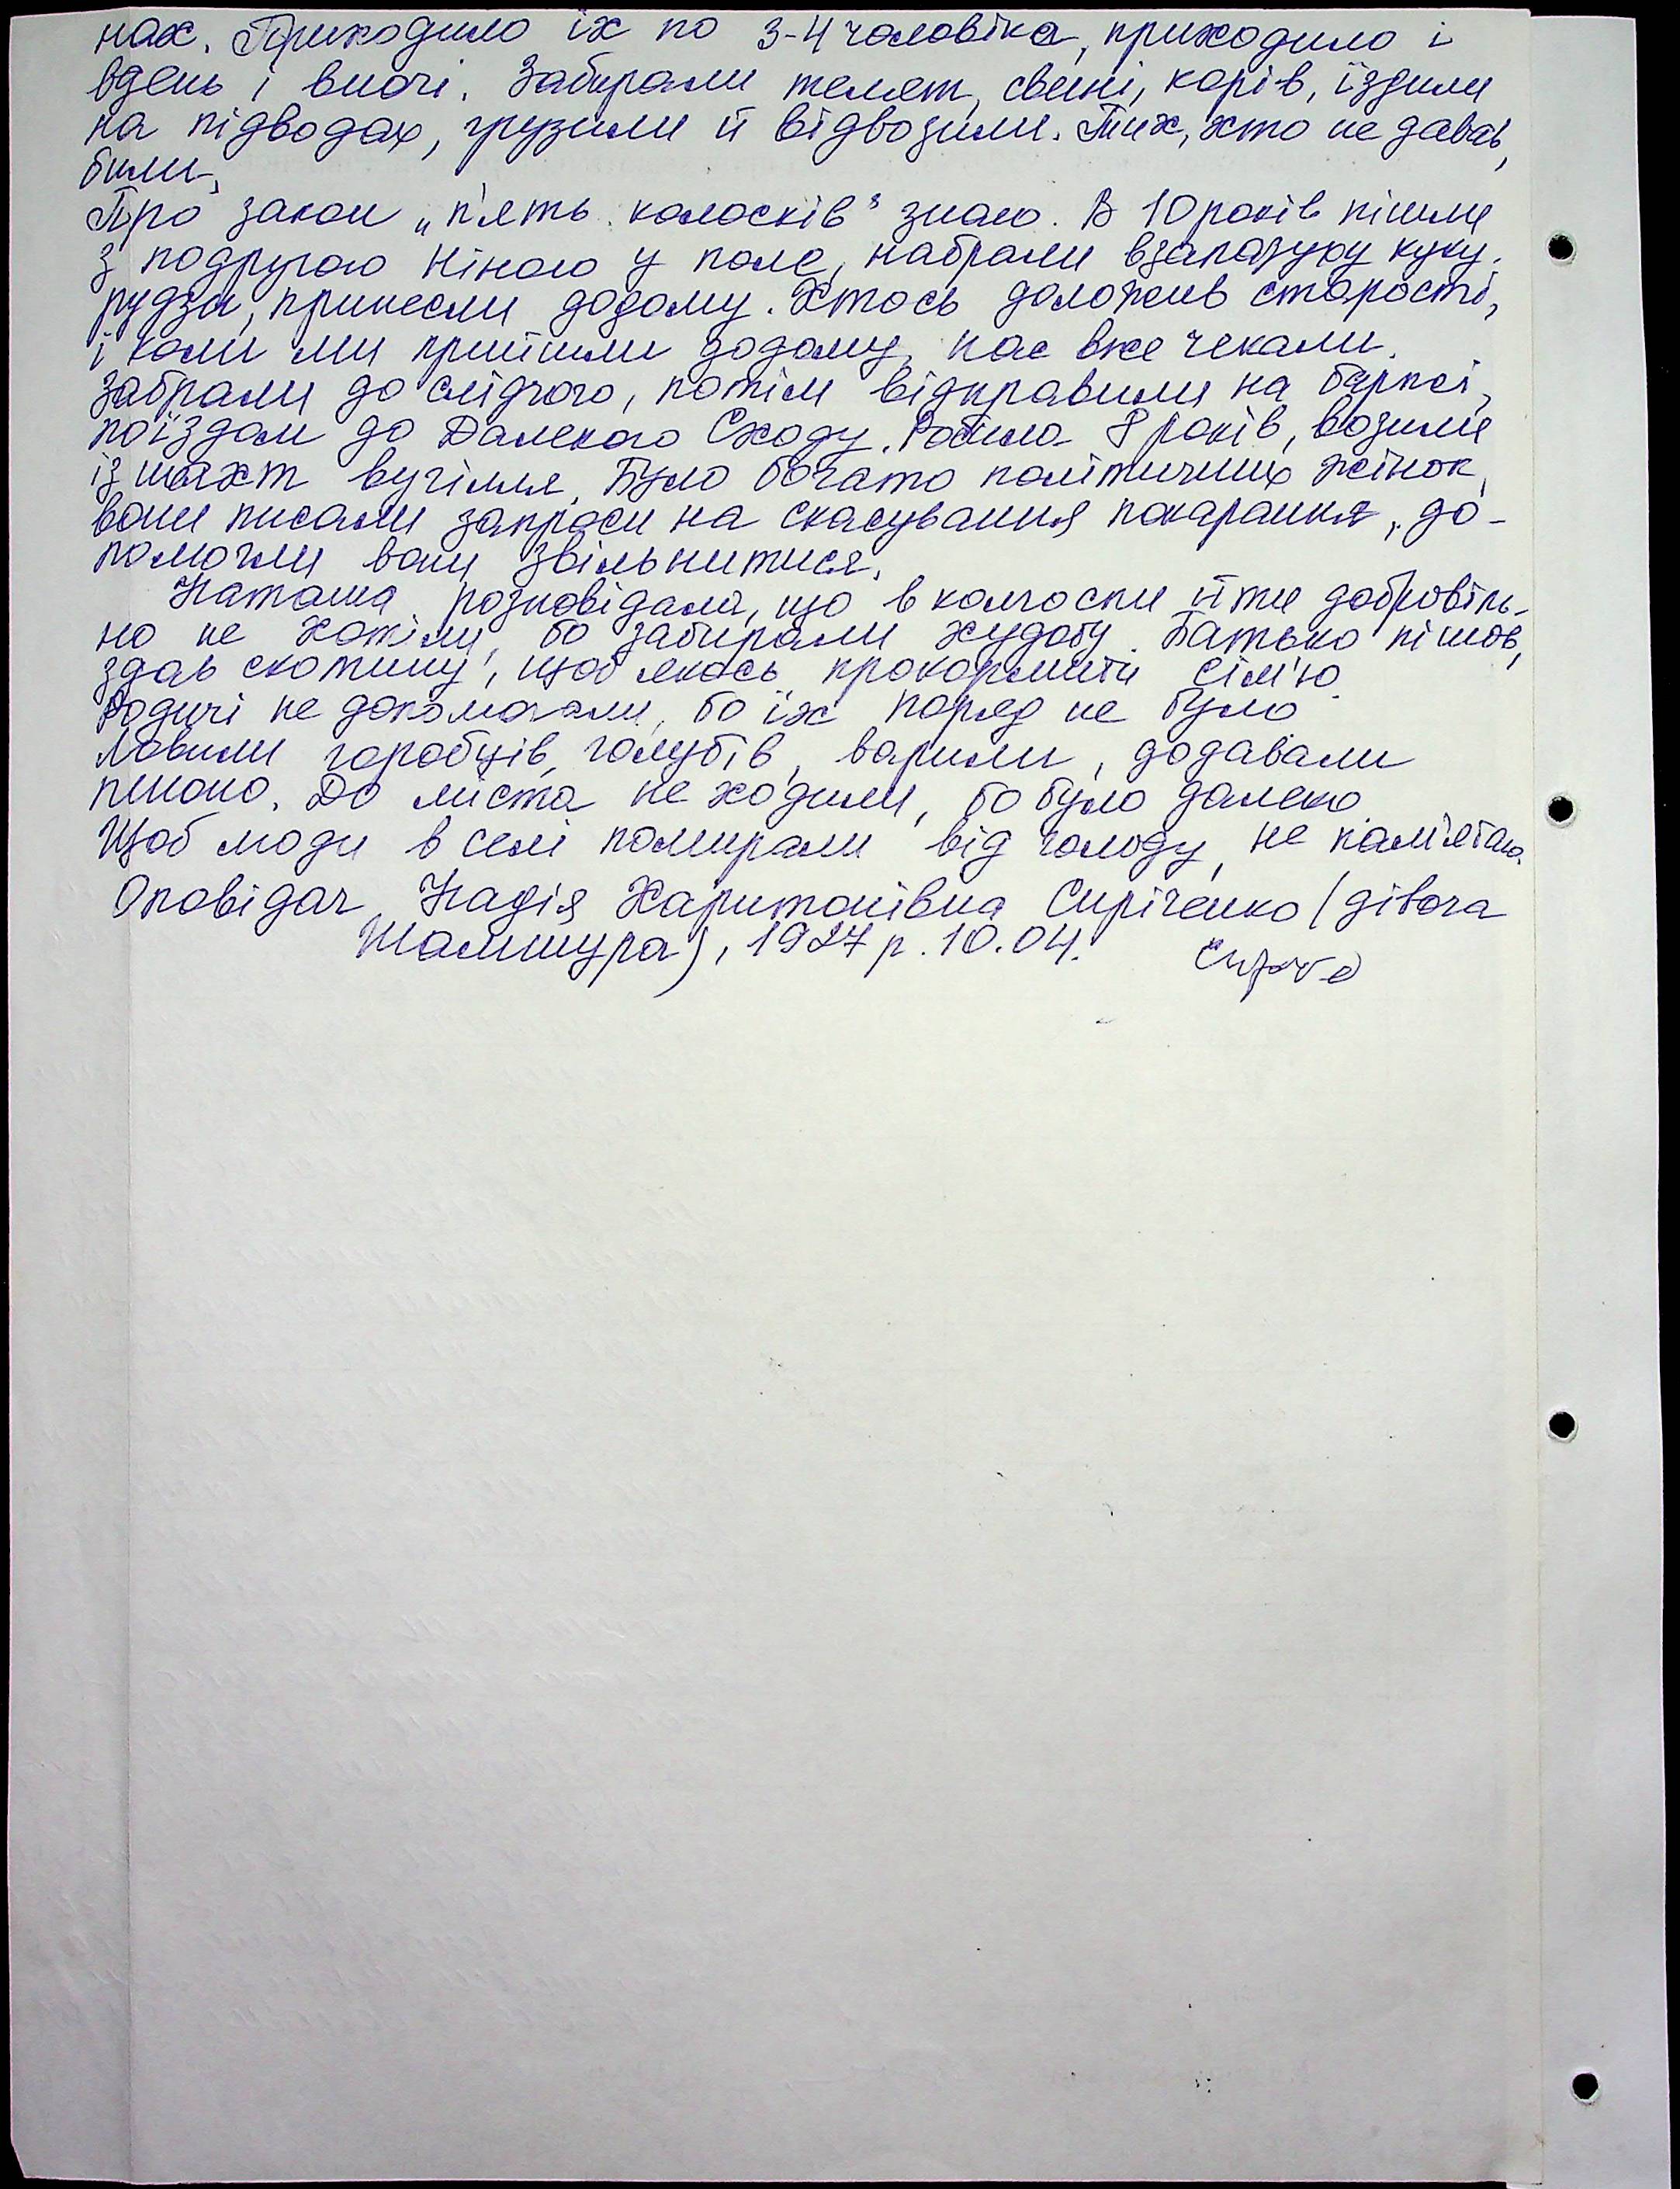 нах. Приходило їх по 3-4 чоловіка, приходило і
вдень і вночі. Забирали телят, свині, корів, їздили
на підводах, грузили й відвозили. Тих, хто не давав,
били.
Про закон „п'ять колосків" знаю. В 10 років пішли
з подругою Ніною у поле, набрали взапазуху куку-
рудзи, принесли додому. Хтось доложив старості,
і коли ми прийшли додому, нас вже чекали.
Забрали до слідчого, потім відправили на баржі,
поїздом до Далекого Сходу. Робила 8 років, возили
із шахт вугілля. Було багато політичних жінок,
вони писали запроси на скасування покарання, до-
помогли вони звільнитися.
Наташа розповідала, що в колгоспи йти добровіль-
но не хотіли, бо забирали худобу. Батько пішов,
здав скотину, щоб якось прокормити сім'ю.
Родичі не допомагали, бо їх поряд не було.
Ловили горобців, голубів, варили, додавали
пшоно. До міста не ходили, бо було далеко.
Щоб люди в селі помирали від голоду, не пам'ятаю.
Оповідач Надія Харитонівна Сиріченко (дівоча
), 1927 р. 10.04.